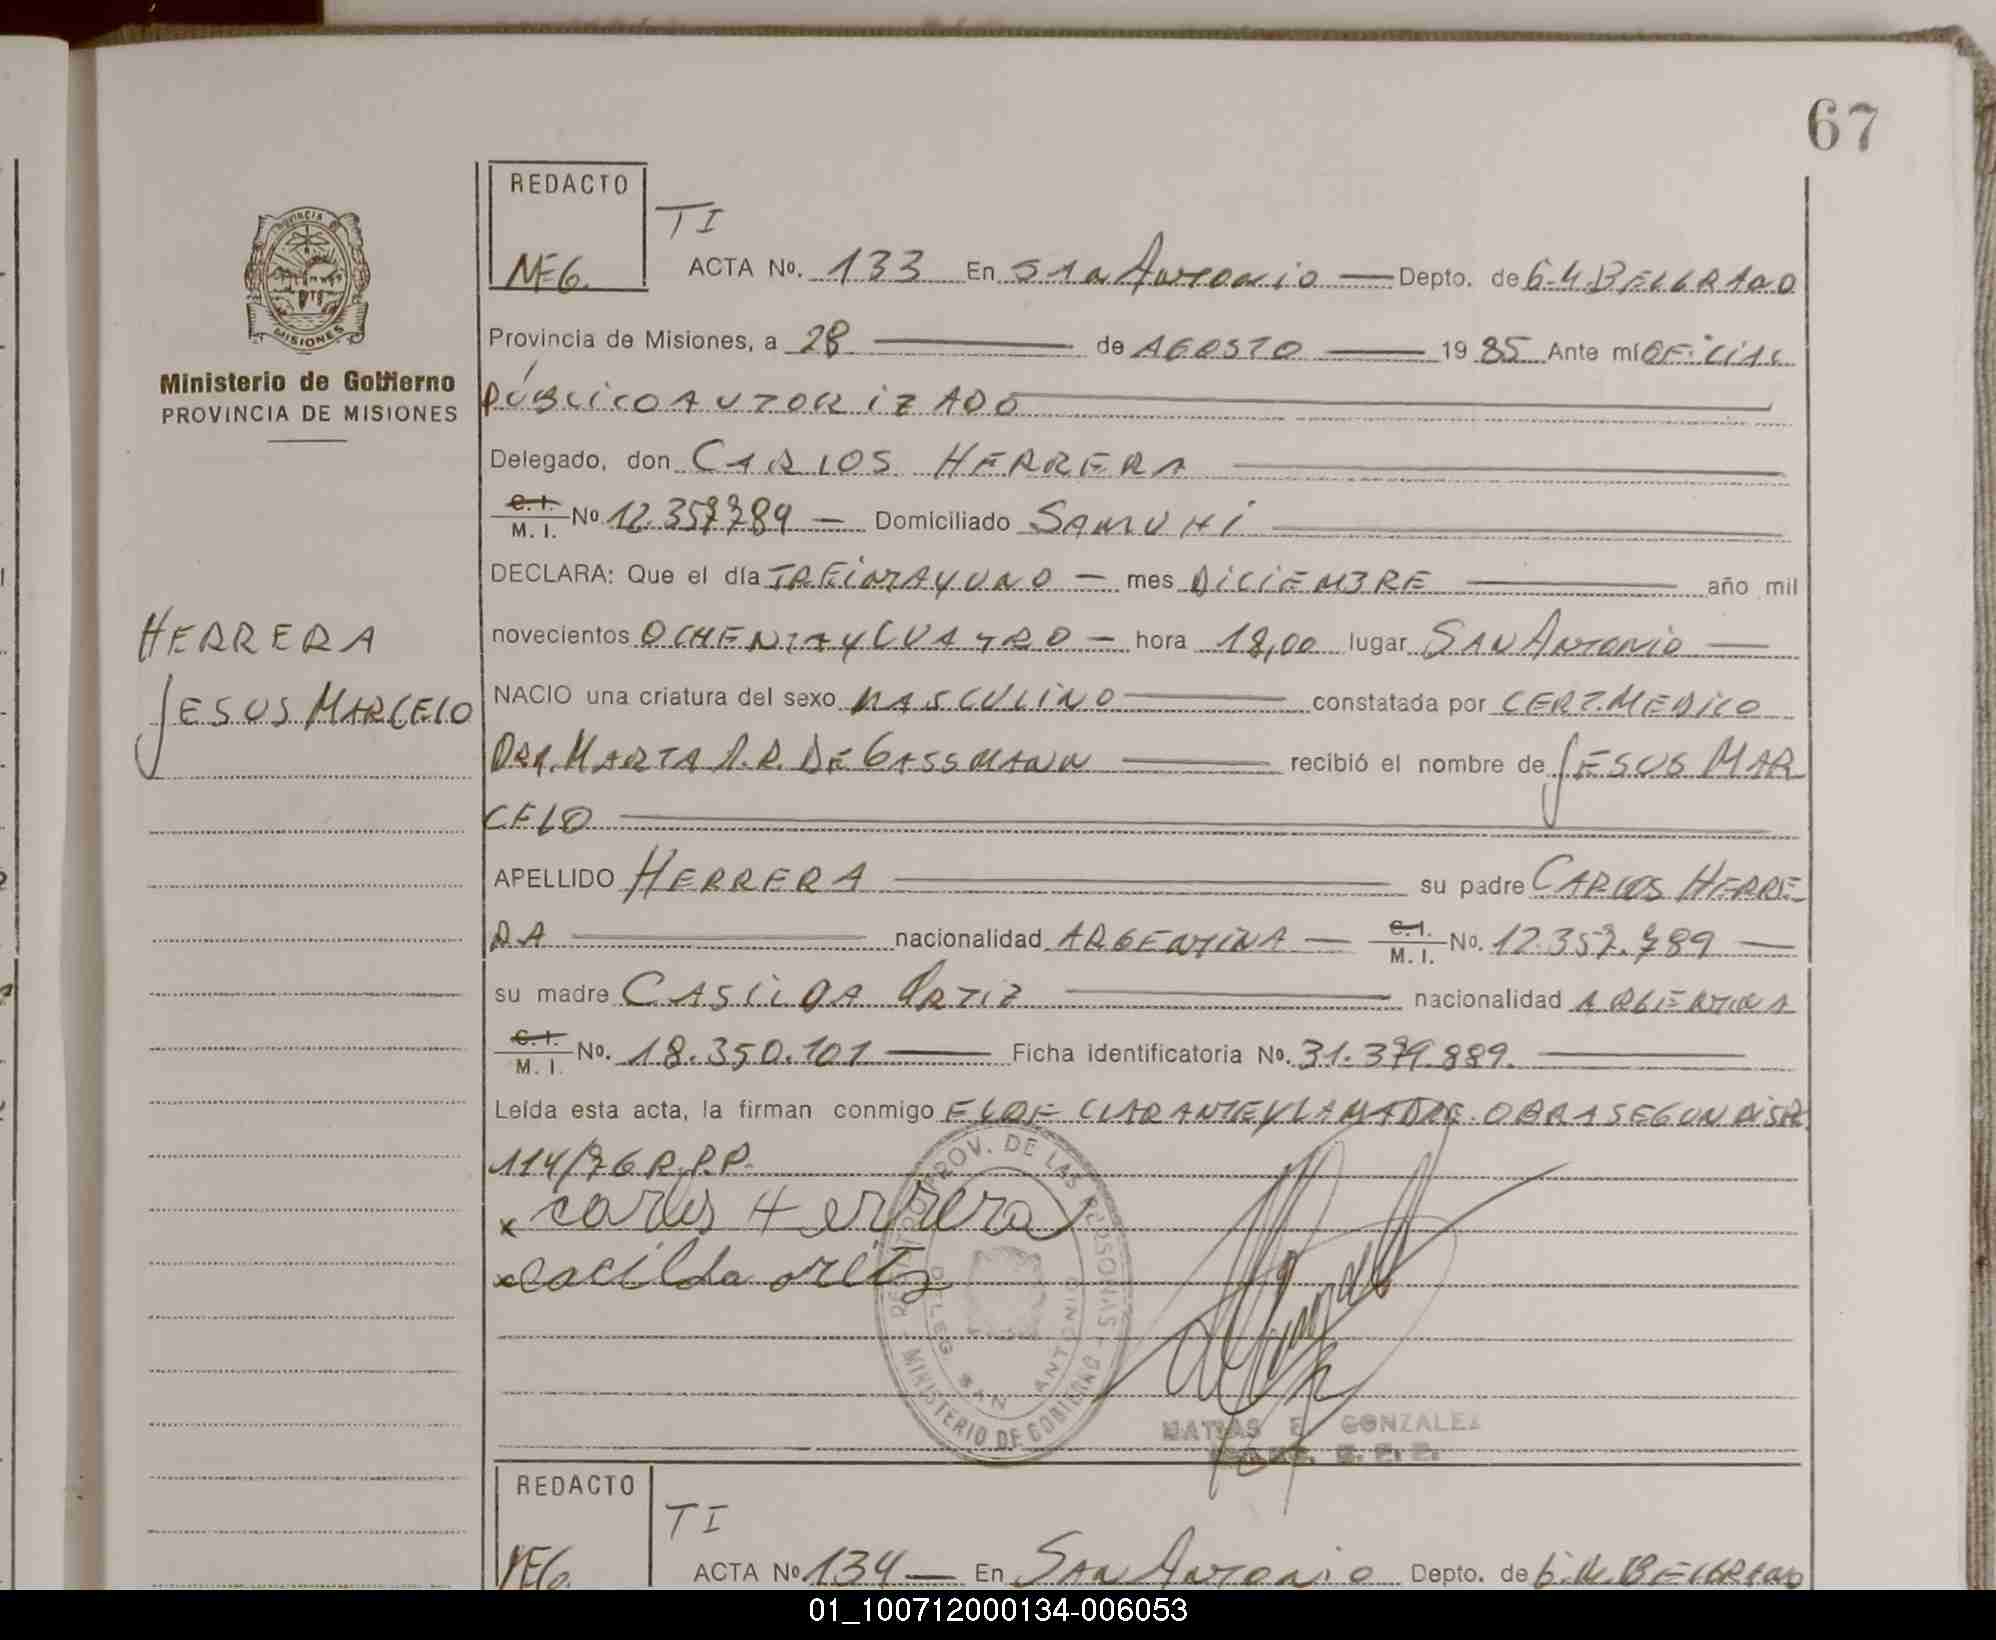 67
REDACTO
MEG.
TI
ACTA No. 133 En San Antonio Depto. de G.M.BELGRANO
PROVINCIA
MISIONES
Ministerio de Gobierno
PROVINCIA DE MISIONES
Provincia de Misiones, a 28 de AGOSTO 19 85 Ante mí OFICIAL
PÚBLICO AUTORIZADO
Delegado, don CARLOS HERRERA
C. I.
M. I. No 12.357.789 Domiciliado SAMUHI
DECLARA: Que el día TREINTA Y UNO mes DICIEMBRE año mil
HERRERA
JESUS MARCELO
novecientos OCHENTA Y CUATRO hora 18,00 lugar SAN ANTONIO
NACIO una criatura del sexo MASCULINO constatada por CERT.MEDICO
DRA. MARTA R.R. DE GASSMANN recibió el nombre de JESUS MAR
CELO
APELLIDO HERRERA su padre CARLOS HERRE-
RA nacionalidad ARGENTINA C. I.
M. I. No. 12.357.789
su madre CASILDA ORTIZ nacionalidad ARGENTINA
C. I.
M. I. No. 18.350.101 Ficha identificatoria No. 31.379.889.
Leída esta acta, la firman conmigo EL DECLARANTE Y LA MADRE. OBRA SEGUN DISP.
114/76 R.P.P.
x carlos Herrera
x cacilda ortiz
PROV. DE LAS PERSONAS
MINISTERIO DE GOBIERNO
DELEG. SAN ANTONIO
MATIAS E GONZALEZ
REDACTO
MEG.
TI
ACTA No 134 En San Antonio Depto. de G.M.BELGRANO
01_100712000134-006053